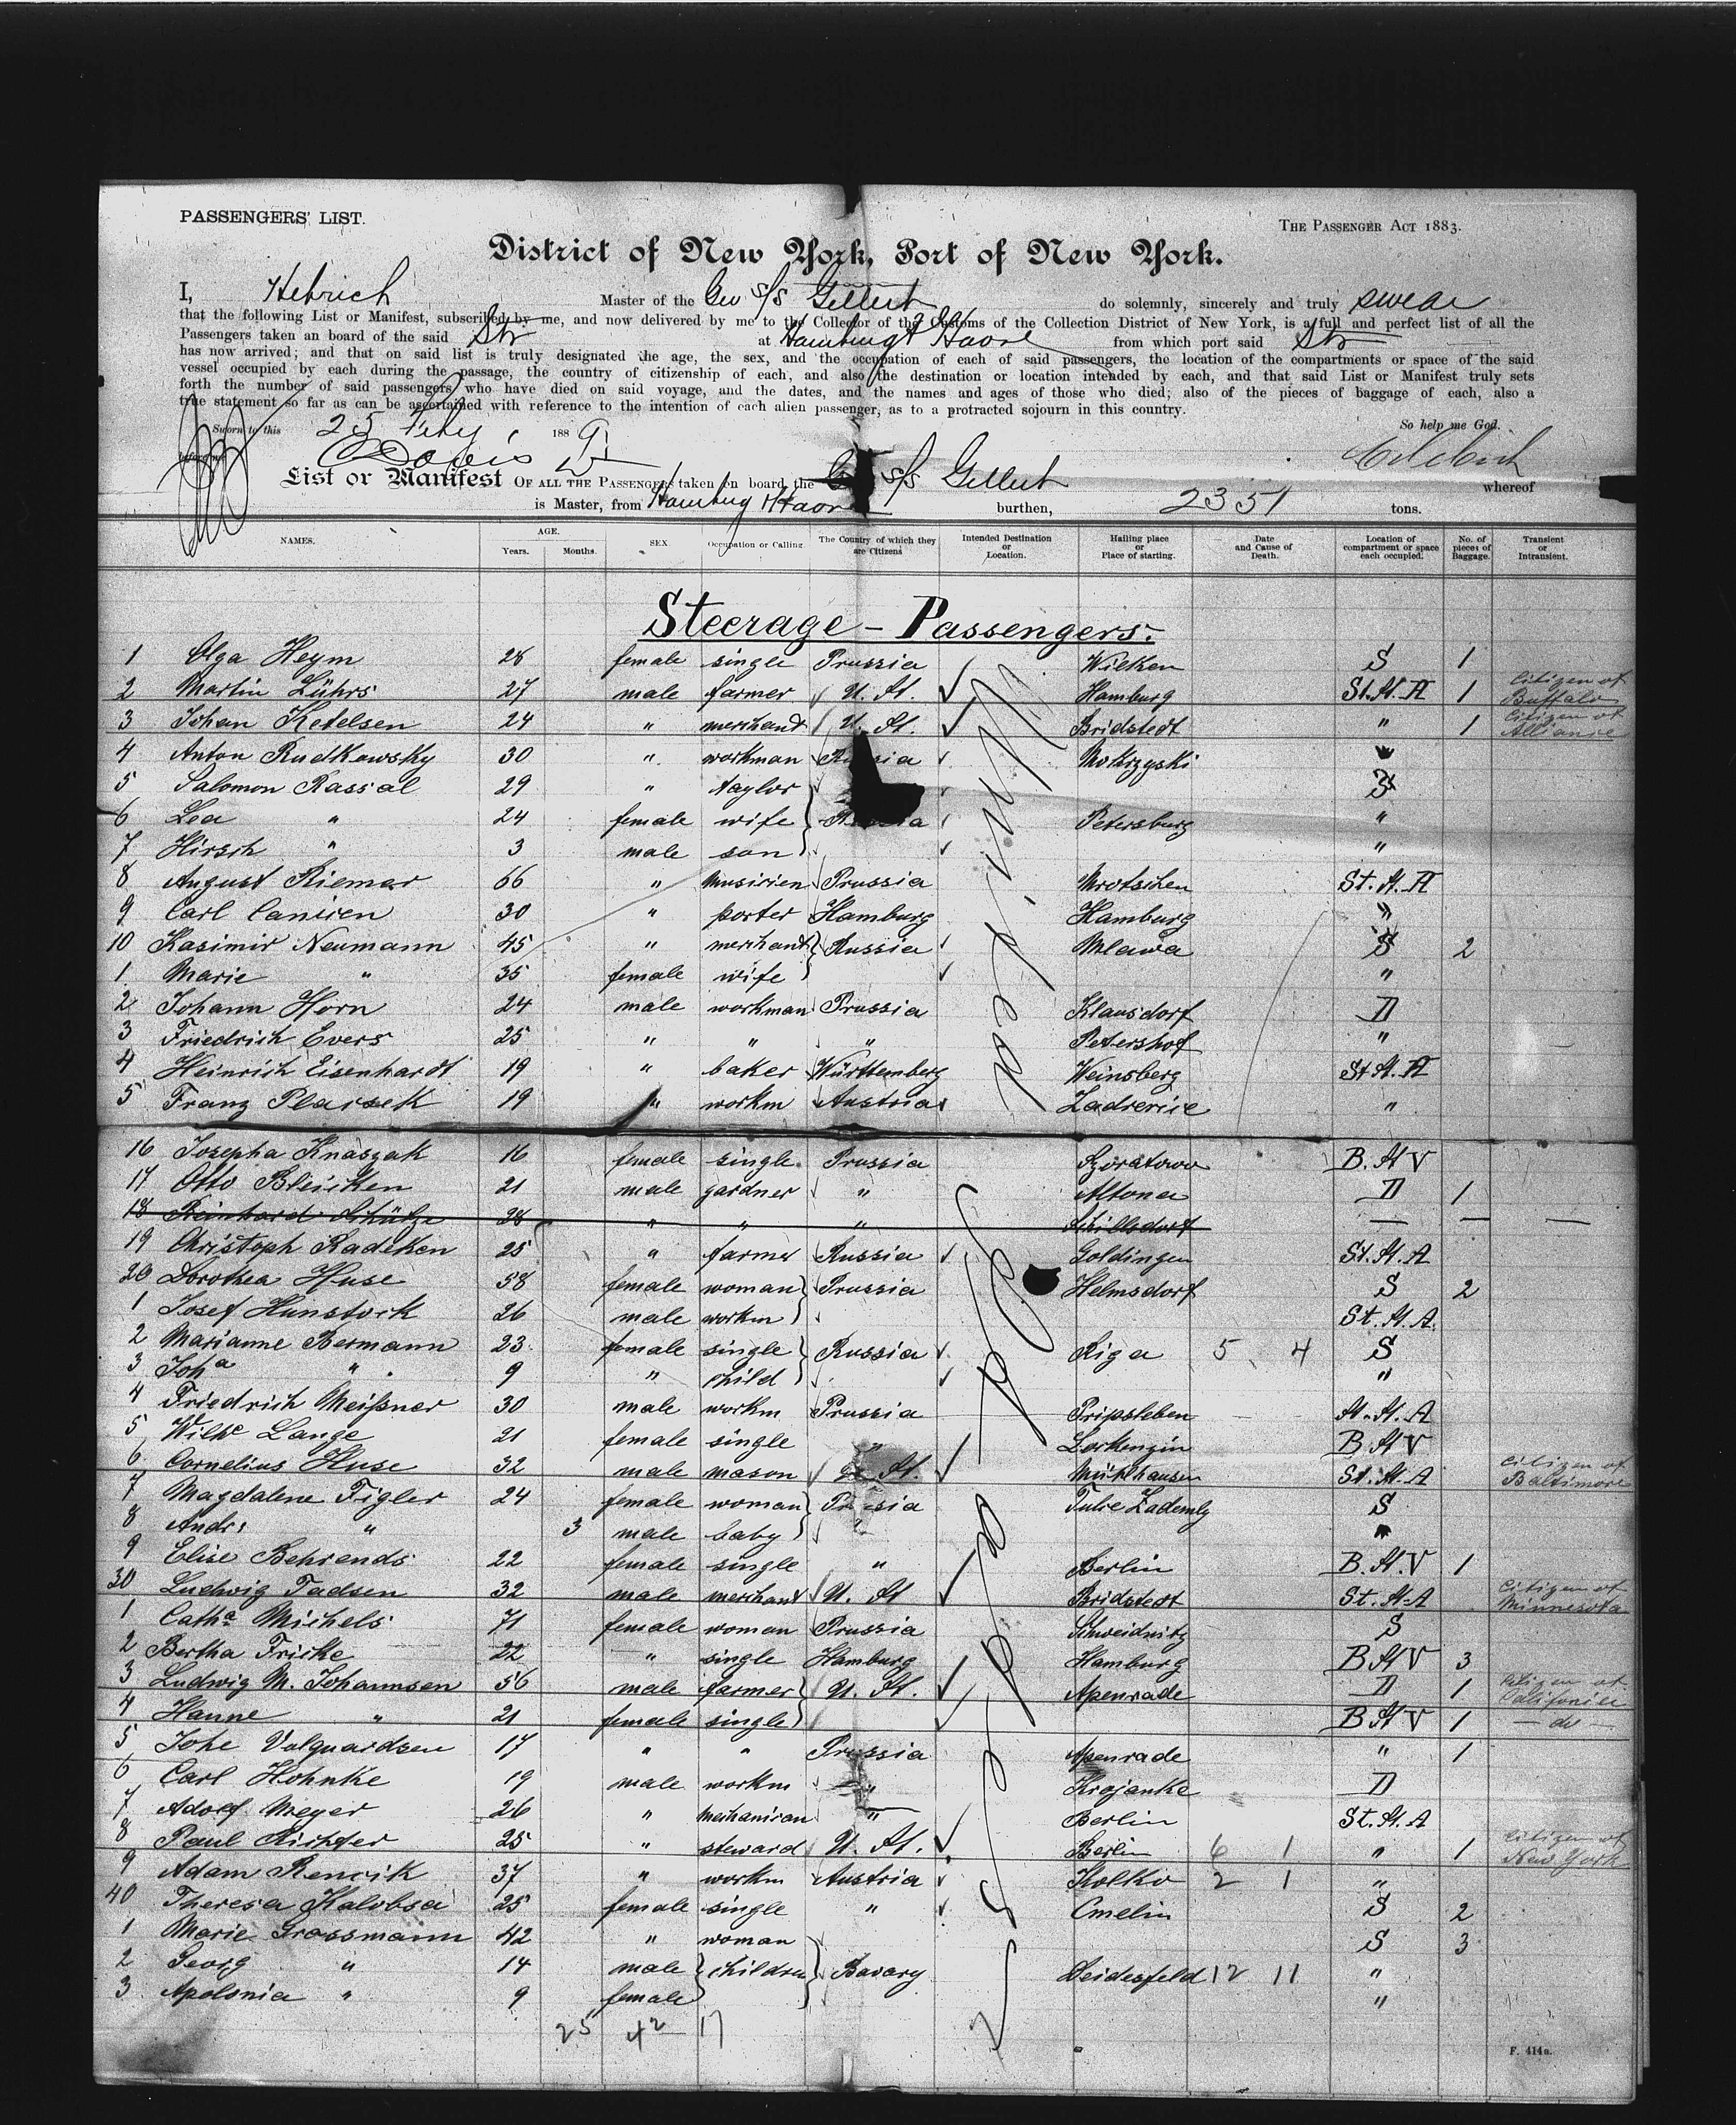 PASSENGERS' LIST.
THE PASSENGER ACT 1883.
District of New York, Port of New York.
I, Hebrich Master of the Ger s/s Gellert do solemnly, sincerely and truly swear
that the following List or Manifest, subscribed by me, and now delivered by me to the Collector of the Customs of the Collection District of New York, is a full and perfect list of all the
Passengers taken an board of the said Str at Hamburg & Havre from which port said Str
has now arrived; and that on said list is truly designated the age, the sex, and the occupation of each of said passengers, the location of the compartments or space of the said
vessel occupied by each during the passage, the country of citizenship of each, and also the destination or location intended by each, and that said List or Manifest truly sets
forth the number of said passengers who have died on said voyage, and the dates, and the names and ages of those who died; also of the pieces of baggage of each, also a
true statement so far as can be ascertained with reference to the intention of each alien passenger, as to a protracted sojourn in this country.
Sworn to this 25 Feby 1889 So help me God.
before me
List or Manifest OF ALL THE PASSENGERS taken on board the s/s Gellert whereof
is Master, from Hamburg Havre burthen, 2351 tons.
NAMES. AGE. Years. Months. SEX. Occupation or Calling. The Country of which they are Citizens Intended Destination or Location. Hailing place or Place of starting. Date and Cause of Death. Location of compartment or space each occupied. No. of pieces of Baggage. Transient or Intransient.
Steerage - Passengers.
1 Olga Heym 28 female single Prussia Wilken S 1
2 Martin Lührs 27 male farmer U. St. Hamburg St. H. A 1 citizen of Buffalo
3 Johan Ketelsen 24 " merchant U. St. Bridstedt " 1 citizen of Alliance
4 Anton Rudkowsky 30 " workman Russia Mokrzyski "
5 Salomon Rassal 29 " taylor S
6 Lea " 24 female wife Russia Petersburg "
7 Hirsch " 3 male son "
8 August Riemer 66 " musicien Prussia Mrotschen St. H. A
9 Carl Cansien 30 " porter Hamburg Hamburg "
10 Kasimir Neumann 45 " merchant Russia Mlawa S 2
1 Marie " 35 female wife "
2 Johann Horn 24 male workman Prussia Klausdorf D
3 Friedrich Evers 25 " " " Petershof "
4 Heinrich Eisenhardt 19 " baker Württemberg Weinsberg St. H. A
5 Franz Plaisek 19 " workm Austria Zadrerice "
16 Josepha Knaszak 16 female single Prussia B. H V
17 Otto Bleicken 21 male gardner " Altona D 1
18 Reinhard Schütze 28 " " " Schillsdorf — — —
19 Christoph Radeken 25 " farmer Russia Goldingen St. H. A
20 Dorothea Huse 58 female woman Prussia Helmsdorf S 2
1 Josef Hunstock 26 male workm St. H. A.
2 Marianne Bermann 23 female single Russia Riga 5 4 S
3 Joha " 9 " child "
4 Friedrich Meißner 30 male workm Prussia Pripsleben St. H. A
5 Wilhe Lange 21 female single " Lorkenzin B. H V
6 Cornelius Huse 32 male mason U. St. Mühlhausen St. H. A citizen of Baltimore
7 Magdalene Figler 24 female woman Prussia S
8 Andr: " 3 male baby "
9 Elise Behrends 22 female single " Berlin B. H. V 1
30 Ludwig Tadsen 32 male merchant U. St Bridstedt St. H. A citizen of Minnesota
1 Catha Michels 71 female woman Prussia Schweidnitz S
2 Bertha Fricke 22 " single Hamburg Hamburg B H V 3
3 Ludwig M. Johannsen 56 male farmer U. St. Apenrade D 1 citizen of California
4 Hanne " 21 female single B H V 1 — do —
5 Johe Volquardsen 17 " " Prussia Apenrade " 1
6 Carl Hohnke 19 male workm " Krojanke D
7 Adolf Meyer 26 " mechanican " Berlin St. H. A
8 Paul Richter 25 " steward U. St. Berlin 6 1 " 1 citizen of New York
9 Adam Rencik 37 " workm Austria Holko 2 1 "
40 Theresa Kalobsa 25 female single " Cmelin S 2
1 Marie Grossmann 42 " woman S 3
2 Georg " 14 male children Bavary Deidesfeld 12 11 "
3 Apolonia " 9 female "
25 42 17
F. 414a.